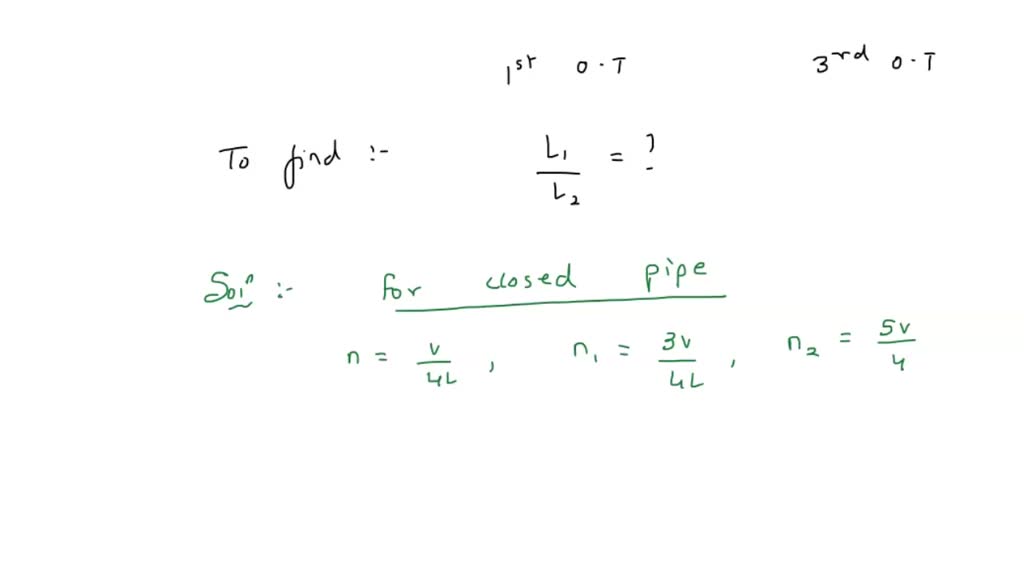 1st O.T 3rd O.T
To find :- L1/L2 = ?
Soln :- for closed pipe
n = v/4L , n1 = 3v/4L , n2 = 5v/4